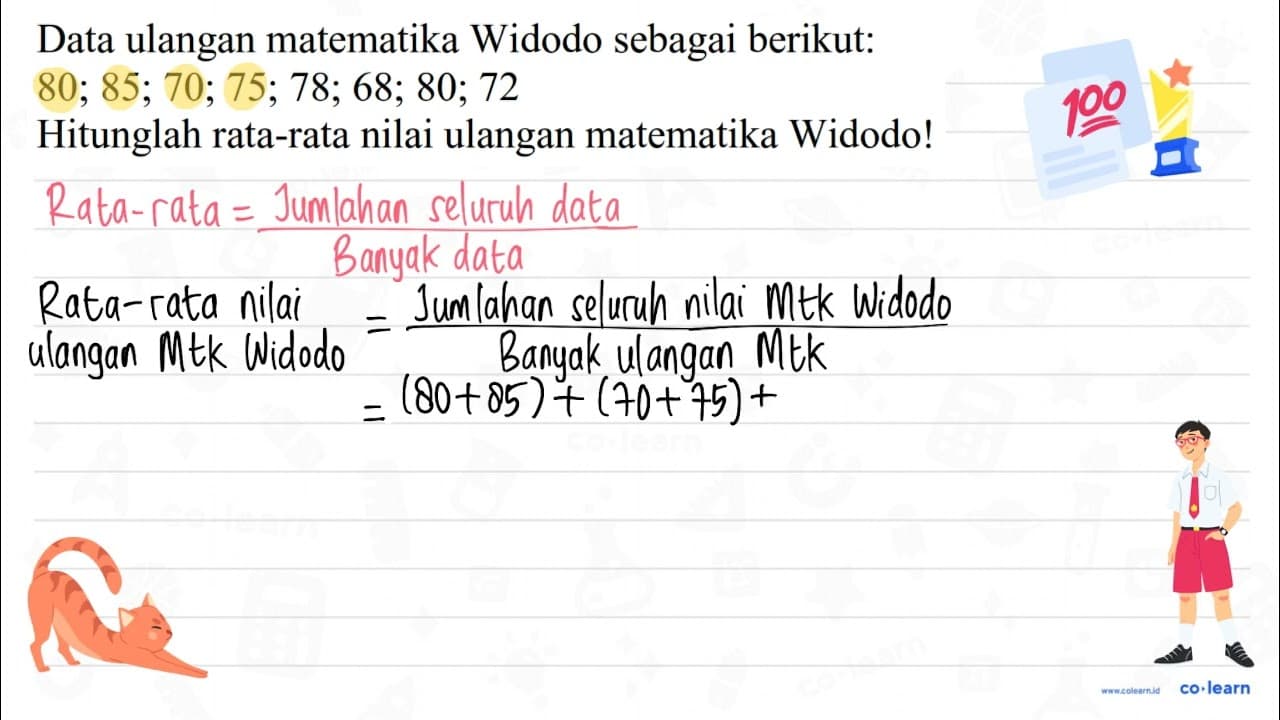 Data ulangan matematika Widodo sebagai berikut:
80; 85; 70; 75; 78; 68; 80; 72
Hitunglah rata-rata nilai ulangan matematika Widodo!
100
Rata-rata = Jumlahan seluruh data
Banyak data
Rata-rata nilai
ulangan Mtk Widodo
= Jumlahan seluruh nilai Mtk Widodo
Banyak ulangan Mtk
= (80+85) + (70+75) +
co·learn
co·learn
co·learn
co·learn
www.colearn.id co·learn